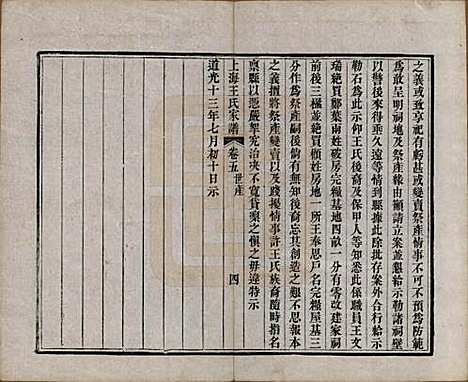 之義或致享祀有虧甚或變賣祭產情事不可不預爲防範
爲敢呈明祠地及祭產緣由顯請立案並懇給示勒諸祠壁
以警後來得垂久遠等情到縣據此除批存案外合行給示
勒石爲此示仰王氏後裔及保甲人等知悉此係職員王文
瑞絕買鄒葉雨姓破房完糧基地四畝一分有零改建家祠
前後三楹並絕買顧姓房地一所王奉思戶名完糧屋基三
分作爲祭產嗣後倘有無知後裔忘其創造之艱不思報本
之義擅將祭產變賣以及踐擾情事許王氏族裔隨時指名
稟縣以憑嚴拏究治决不寬貸稟之愼之毋違特示
道光十三年七月初十日示
上海王氏家譜
卷五世產
四